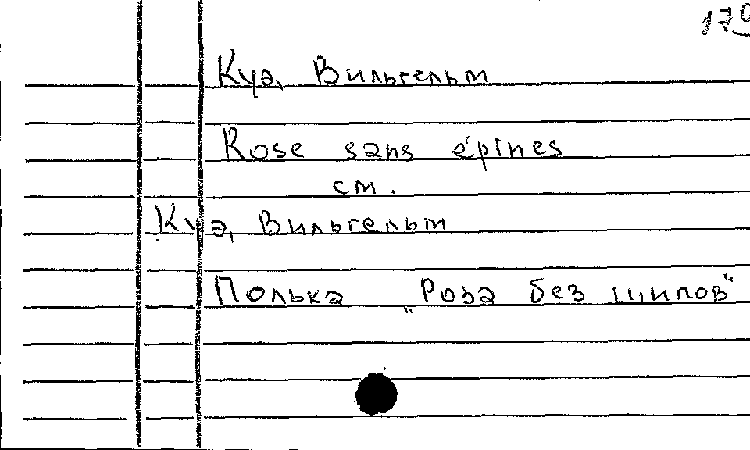 Куэ, Вильгельм
Rose sans épines
см.
Куэ, Вильгельм
Полька „Роза без шипов"